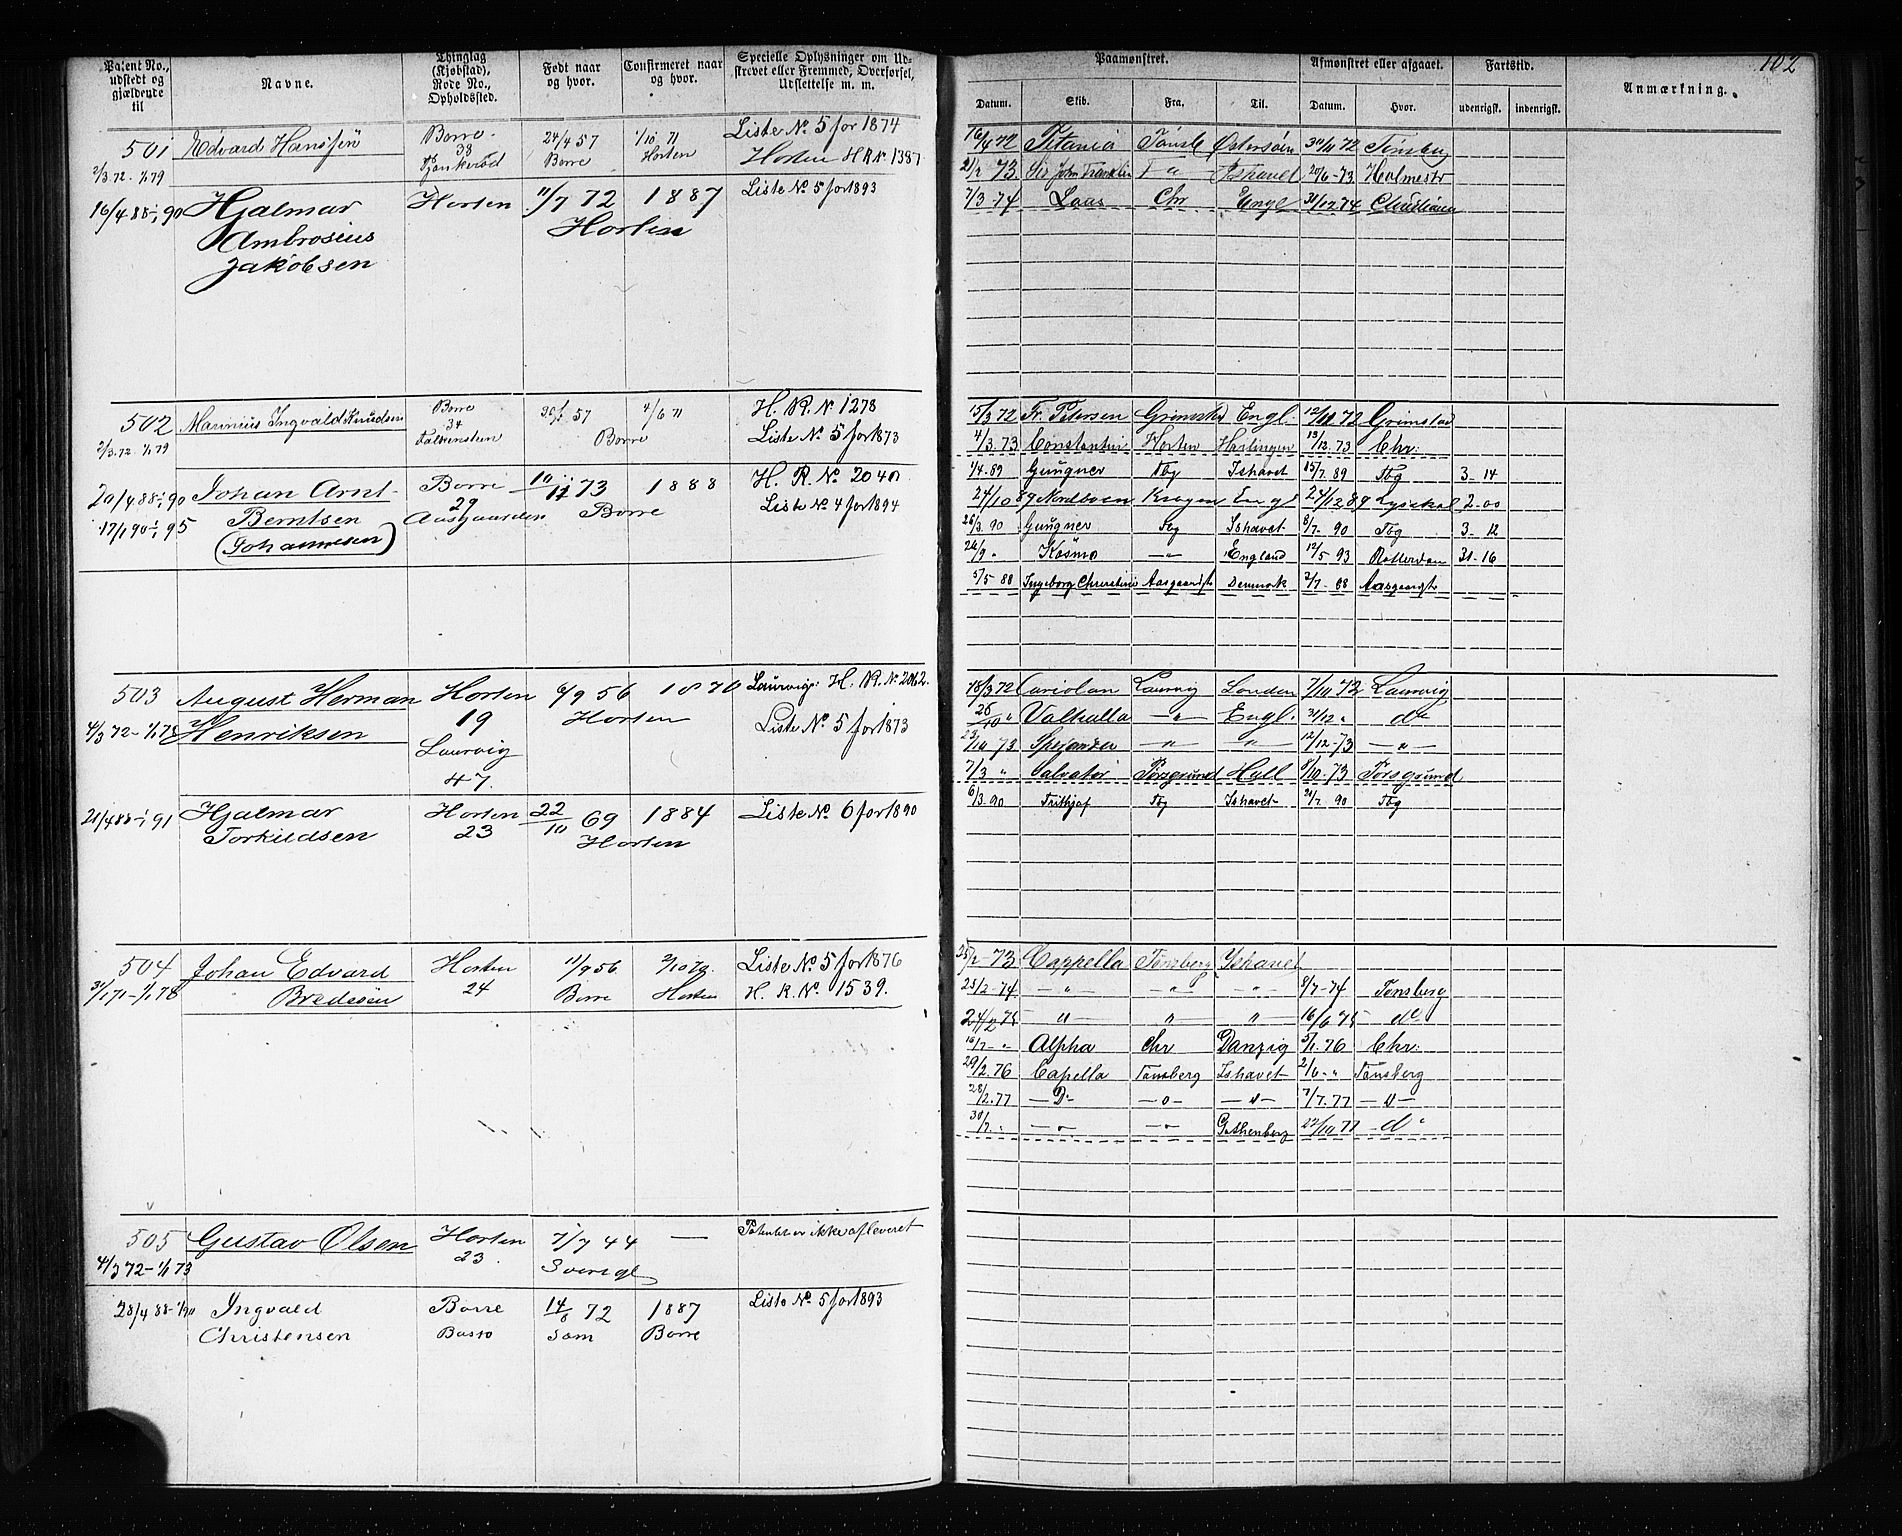 102
Patent No., udstedt og gjældende til
Navne.
Thinglag (Kjøbstad), Rode No., Opholdssted.
Født naar og hvor.
Confirmeret naar og hvor.
Specielle Oplysninger om Udstrevet eller Fremmed, Overførsel, Udslettelse m. m.
Paamønstret.
Afmønstret eller afgaaet.
Fartstid.
Anmærkning.
Datum. Skib. Fra. Til. Datum. Hvor. udenrigsk. indenrigsk.
501 Edvard Hansen Borre 38 24/4 57 Borre 1/10 71 Horten Liste No 5 for 1874
2/3 72 - 1/1 79 Horten H R No 1387
16/4 88 - 1/1 90 Hjalmar Ambrosius Jakobsen Horten 11/7 72 1887 Horten Liste No 5 for 1893
16/4 72 Titania Tønsb Østersøen 30/11 72 Tønsberg
21/2 73 Sir John Franklin T " Ishavet 20/6 - 73 Holmestr
7/3 - 74 Laas Chr Engl 31/12 74 Christiania
502 Marinius Ingvald Knudsen Borre 34 Falkensteen 57 4/6 71 Borre H. R. N 1278
2/3. 72 - 1/1 79 Liste No 5 for 1873
20/4 88 - 1/1 90 Johan Arnt Berntsen Borre 29 Aasgaarden 10/11 73 1888 Borre H. R. No 2040
17/1 90 - 1/1 95 (Johannesen) Liste No 4 for 1894
15/3 72 Fr. Petersen Grimstd Engl. 12/11 72 Grimstad
4/3. 73 Constantin Horten Harlingen 13/12. 73 Chr:
1/4. 89 Gungner Tbg Ishavet 15/7. 89 Tbg 3 - 14
24/10 89 Nordboen Kragerø Engl 24/12 89 Lysekil 2 - 00
26/3. 90 Gungner Tbg Ishavet 8/7 - 90 Tbg 3 - 12
26/9 " Kosmo — " — England 12/5 93 Rotterdam 31 - 16
5/5 - 88 Ingeborg Christine Aasgaardst Danmark 2/7 - 88 Aasgaardst
503 August Herman Henriksen Horten 19 Laurvig 47. 6/9 56 1870 Horten Laurvigs H. R. No 2062.
4/3 72 - 1/1 78 Liste No 5 for 1873
21/4 88 - 1/1 91 Hjalmar Torkildsen Horten 23 22/10 69 1884 Horten Liste No 6 for 1890
18/3 72 Coriolan Laurvig London 7/10 72 Laurvig
26/10 " Valhalla — " — Engl. 31/12 " do
73 — " — — " — 12/12 - 73 — " —
7/3 " Salvator Porsgrund Hull 8/10 - 73 Porsgrund
6/3. 90 Frithjof Tbg Ishavet 21/7. 90 Tbg
504 Johan Edvard Bredesen Horten 24 11/9 56 Borre 2/10 70. Horten Liste No 5 for 1876
31/1 71 - 1/1 78 H. R. No. 1539.
25/2 - 73 Cappella Tønsberg Ishavet
23/2 - 74 — " — — " — — " — 8/7 - 74 Tønsberg
24/2 75 — " — " " 16/6 75 do
16/7 - " Alpha Chr Danzig 5/1. 76 Chr:
29/2. 76 Capella Tønsberg Ishavet 2/6 - " Tønsberg
28/2. 77 — Do — — " — — " — 7/7. 77 — " —
30/7. " — " — — " — Gothenberg 22/10 77 — do "
505 Gustav Olsen Horten 23 7/7 44 Sverige — Patentet er ikke afleveret
4/3 72 - 1/1 73
28/4 88 - 1/1 90 Ingvald Christensen Borre Basto 14/6 72 Søm 1887 Borre Liste No 5 for 1893